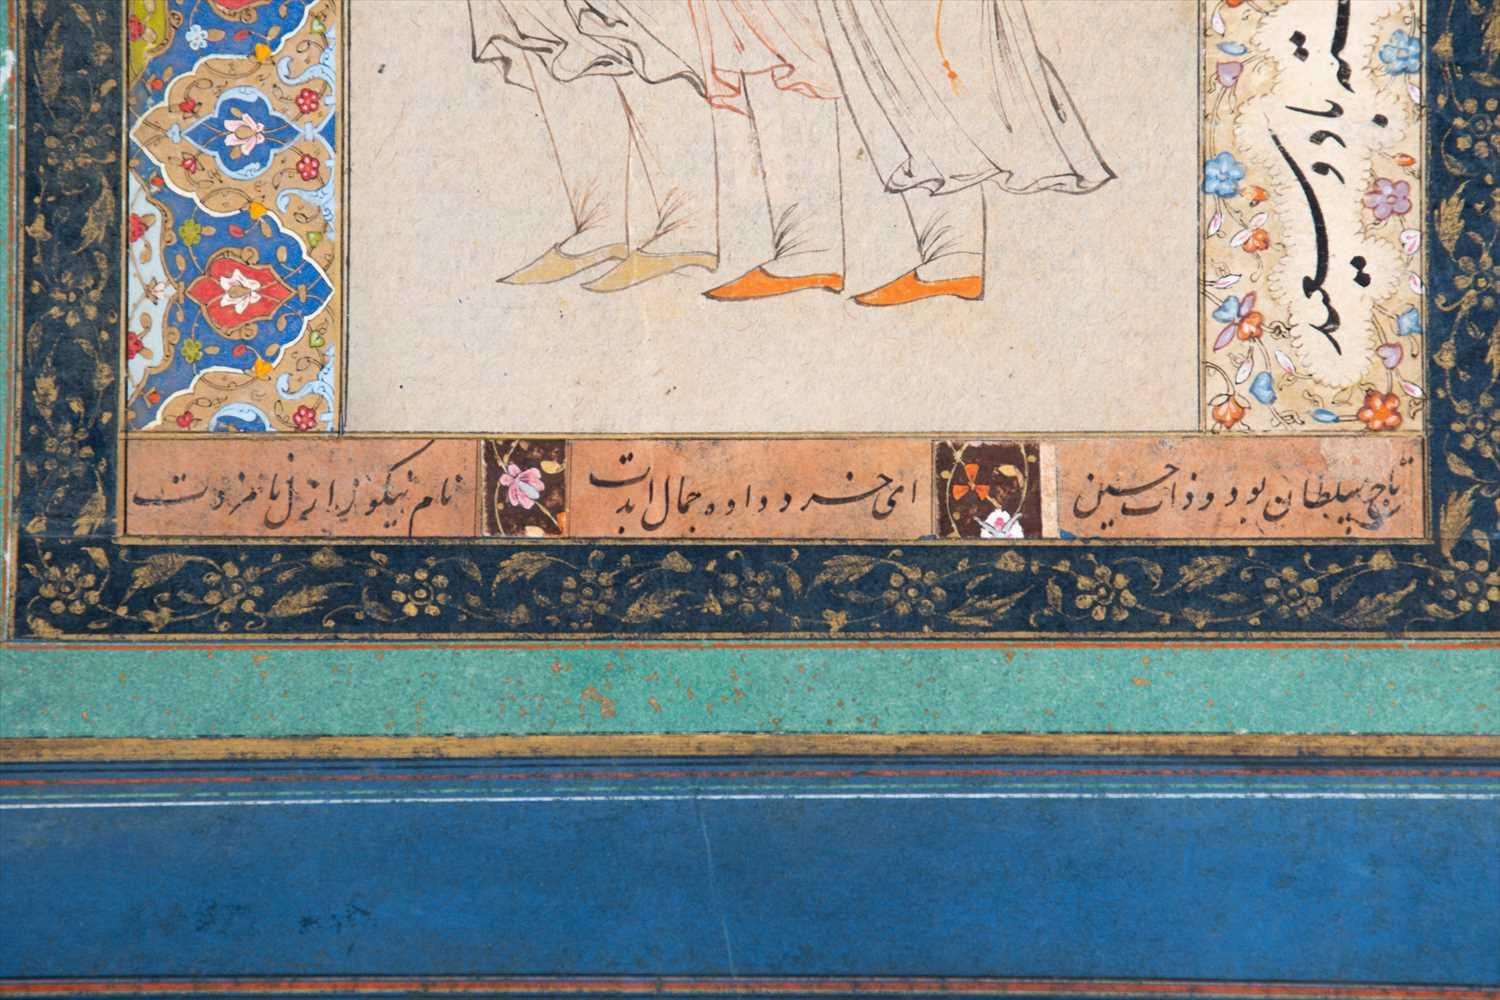 تاج سلطان بود و ذات حسین
ای خرد داوه جمال ابدت
نام نیکو ز ازل نامزدت
باد و سعید